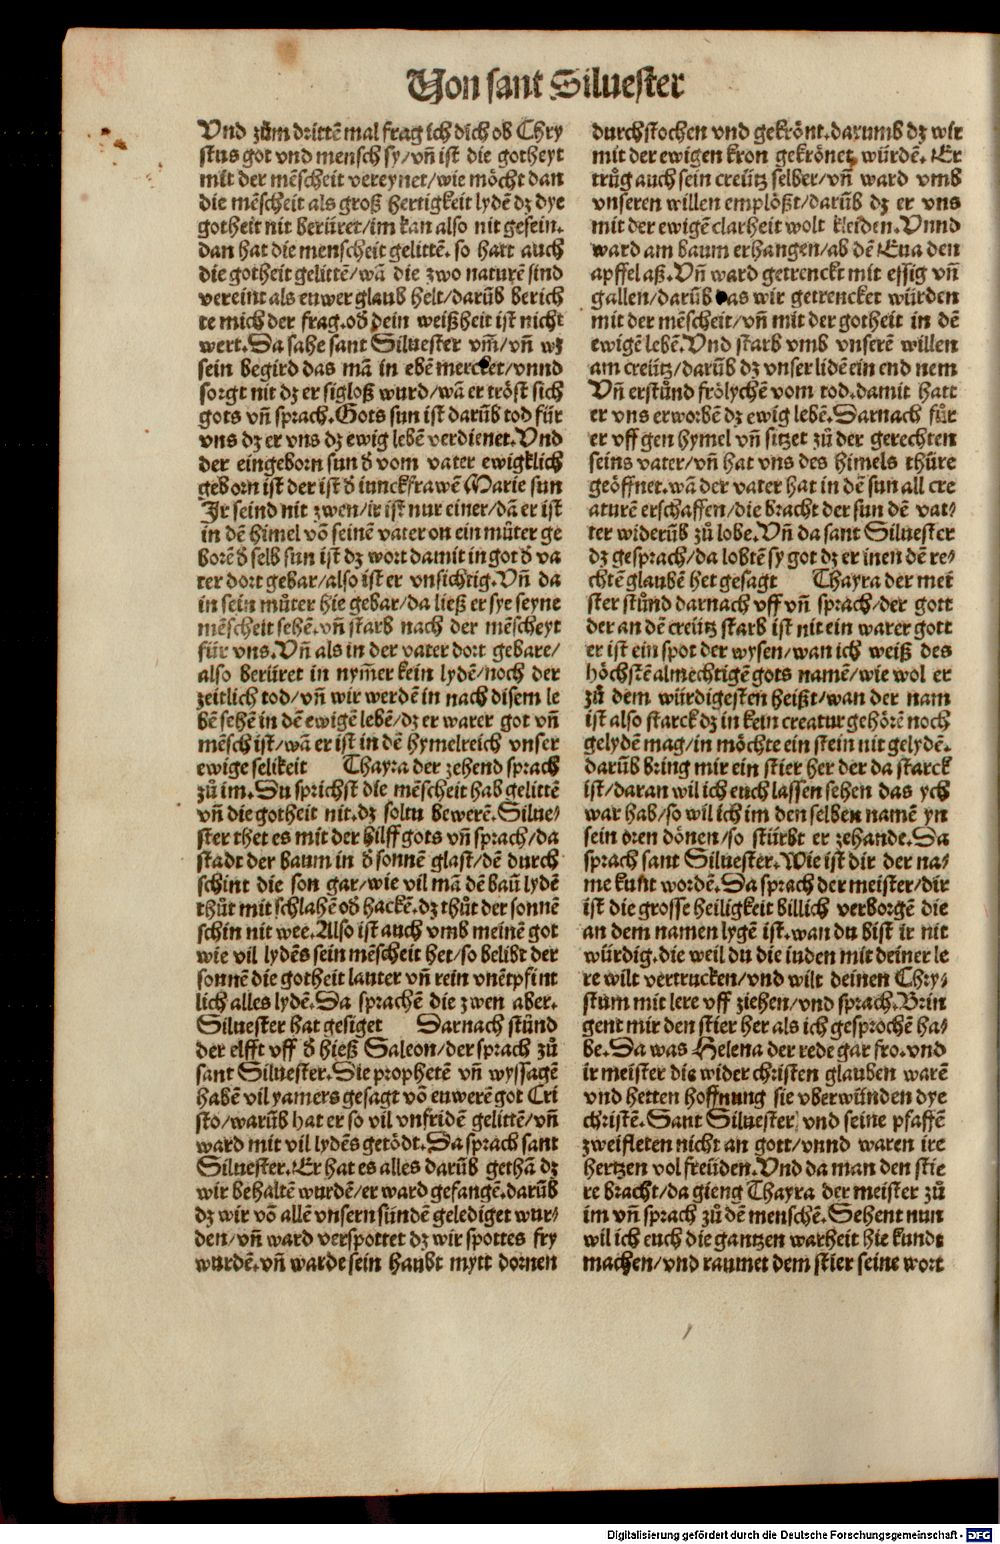 Von sant Siluester
Vnd zům drittẽ mal frag ich dich ob Chry
stus got vnd mensch sy/vñ ist die gotheyt
mit der mẽscheit vereynet/wie möcht dan
die mẽscheit als groß hertigkeit lydẽ dz dye
gotheit nit berüret/im kan also nit gesein.
dan hat die menscheit gelittẽ. so hatt auch
die gotheit gelittẽ/wã die zwo naturẽ sind
vereint als euwer glaub helt/darũb berich
te mich der frag.oď dein weißheit ist nicht
wert.Da sahe sant Siluester vm̃/vñ wz
sein begird das mã in ebẽ mercket/vnnd
sorgt nit dz er sigloß wurd/wã er tröst sich
gots vñ sprach.Gots sun ist darũb tod für
vns dz er vns dz ewig lebẽ verdienet.Vnd
der eingeborn sun ď vom vater ewigklich
geborn ist der ist ď iunckfrawẽ Marie sun
Ir seind nit zwen/ir ist nur einer/dã er ist
in dẽ himel võ seinẽ vater on ein můter ge
borẽ ď selb sun ist dz wort damit in got ď va
ter dort gebar/also ist er vnsichtig.Vñ da
in sein můter hie gebar/da ließ er sye seyne
mẽscheit sehẽ.vñ starb nach der mẽscheyt
für vns.Vñ als in der vater dort gebare/
also berüret in nym̃er kein lydẽ/noch der
zeitlich tod/vñ wir werdẽ in nach disem le
bẽ sehẽ in dẽ ewigẽ lebẽ/dz er warer got vñ
mẽsch ist/wã er ist in dẽ hymelreich vnser
ewige selikeit Thayra der zehend sprach
zů im.Du sprichst die mẽscheit hab gelittẽ
vñ die gotheit nit.dz soltu bewerẽ.Silue⸗
ster thet es mit der hilff gots vñ sprach/da
stadt der baum in ď sonnẽ glast/dẽ durch
schint die son gar/wie vil mã dẽ baũ lydẽ
thůt mit schlahẽ oď hackẽ.dz thůt der sonnẽ
schin nit wee.Allso ist auch vmb meinẽ got
wie vil lydẽs sein mẽscheit het/so belibt der
sonnẽ die gotheit lauter vñ rein vnẽtpfint
lich alles lydẽ.Da sprachẽ die zwen aber.
Siluester hat gesiget Darnach stůnd
der elfft vff ď hieß Saleon/der sprach zů
sant Siluester.Die prophetẽ vñ wyssagẽ
habẽ vil yamers gesagt võ euwerẽ got Cri
sto/warũb hat er so vil vnfridẽ gelittẽ/vñ
ward mit vil lydẽs getödt.Da sprach sant
Siluester.Er hat es alles darũb gethã dz
wir behaltẽ wurdẽ/er ward gefangẽ.darũb
dz wir võ allẽ vnsern sündẽ gelediget wur⸗
den/vñ ward verspottet dz wir spottes fry
wurdẽ.vñ warde sein haubt mytt dornen
durchstochen vnd gekrönt.darumb dz wir
mit der ewigen kron gekrönet würdẽ. Er
trůg auch sein creütz selber/vñ ward vmb
vnseren willen emplößt/darũb dz er vns
mit der ewigẽ clarheit wolt kleiden.Vnnd
ward am baum erhangen/ab dẽ Eua den
apffel aß.Vñ ward getrenckt mit essig vñ
gallen/darũb das wir getrencket würden
mit der mẽscheit/vñ mit der gotheit in dẽ
ewigẽ lebẽ.Vnd starb vmb vnserẽ willen
am creütz/darũb dz vnser lidẽ ein end nem
Vñ erstůnd frölychẽ vom tod.damit hatt
er vns erworbẽ dz ewig lebẽ.Darnach für
er vff gen hymel vñ sitzet zů der gerechten
seins vater/vñ hat vns des himels thüre
geöffnet.wã der vater hat in dẽ sun all cre
aturẽ erschaffen/die bracht der sun dẽ vat⸗
ter widerũb zů lobe.Vñ da sant Siluester
dz gesprach/da lobtẽ sy got dz er inen dẽ re⸗
chtẽ glaubẽ het gesagt Thayra der mei
ster stůnd darnach vff vñ sprach/der gott
der an dẽ creütz starb ist nit ein warer gott
er ist ein spot der wysen/wan ich weiß des
höchstẽ almechtigẽ gots namẽ/wie wol er
zů dem würdigesten heißt/wan der nam
ist also starck dz in kein creatur gehörẽ noch
gelydẽ mag/in möchte ein stein nit gelydẽ.
darũb bring mir ein stier her der da starck
ist/daran wil ich euch lassen sehen das ych
war hab/so wil ich im den selben namẽ yn
sein oren dönen/so stürbt er zehande.Da
sprach sant Siluester.Wie ist dir der na⸗
me kunt wordẽ.Da sprach der meister/dir
ist die grosse heiligkeit billich verborgẽ die
an dem namen lygẽ ist.wan du bist ir nit
würdig.die weil du die iuden mit deiner le
re wilt vertrucken/vnd wilt deinen Chry⸗
stum mit lere vff ziehen/vnd sprach.Brin
gent mir den stier her als ich gesprochẽ ha⸗
be.Da was Helena der rede gar fro.vnd
ir meister die wider christen glauben warẽ
vnd hetten hoffnung sie vberwünden dye
christẽ.Sant Siluester vnd seine pfaffẽ
zweifleten nicht an gott/vnnd waren ire
hertzen vol freüden.Vnd da man den stie
re bracht/da gieng Thayra der meister zů
im vñ sprach zů dẽ menschẽ.Sehent nun
wil ich euch die gantzen warheit hie kundt
machen/vnd raumet dem stier seine wort
Digitalisierung gefördert durch die Deutsche Forschungsgemeinschaft - DFG